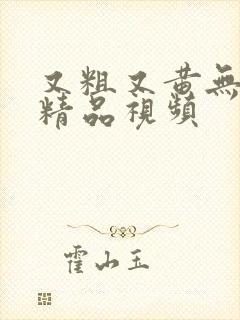 又粗又黄無
精品視頻
霍山玉